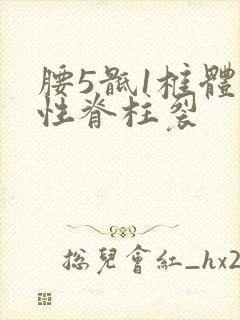 腰5骶1椎體
性脊柱裂
总兒會紅_hx2